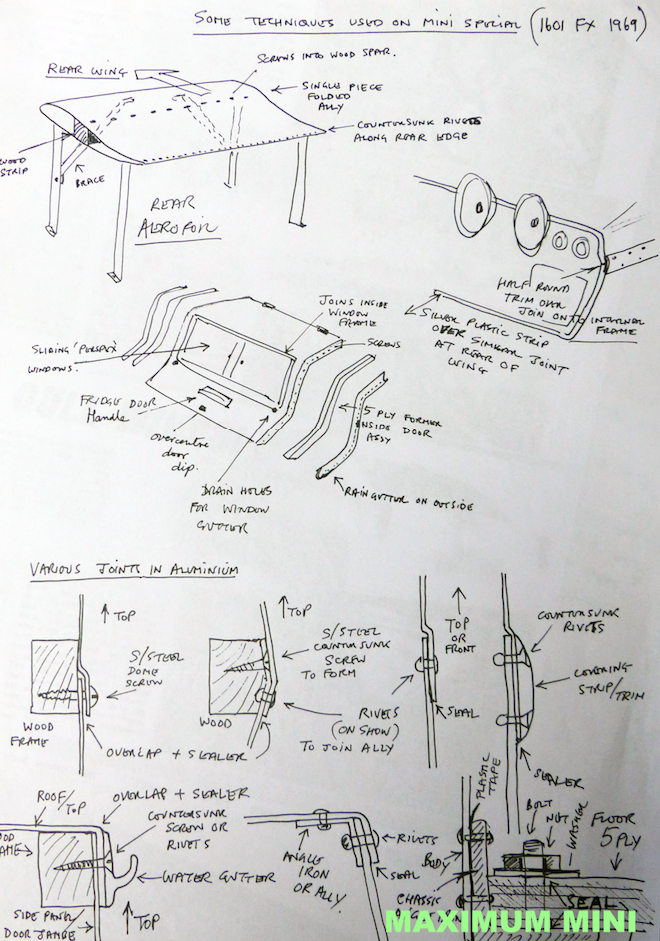 SOME TECHNIQUES USED ON MINI SPECIAL (1601 FX 1969)
REAR WING
SCREWS INTO WOOD SPAR.
SINGLE PIECE
FOLDED
ALLY
COUNTERSUNK RIVETS
ALONG REAR EDGE
WOOD
STRIP
BRACE
REAR
AEROFOIL
HALF ROUND
TRIM OVER
JOIN ONTO INTERNAL
FRAME
SILVER PLASTIC STRIP
OVER SIMILAR JOINT
AT REAR OF
WING
JOINS INSIDE
WINDOW
FRAME
SCREWS
SLIDING 'PERSPEX'
WINDOWS.
FRIDGE DOOR
Handle
overcentre
door
clip.
5 PLY FORMER
INSIDE DOOR
ASSY
DRAIN HOLES
FOR WINDOW
GUTTER
RAIN GUTTER ON OUTSIDE
VARIOUS JOINTS IN ALUMINIUM
TOP
S/STEEL
DOME
SCREW
WOOD
FRAME
OVERLAP + SEALER
TOP
S/STEEL
COUNTERSUNK
SCREW
TO FORM
WOOD
RIVETS
(ON SHOW)
TO JOIN ALLY
TOP
OR
FRONT
SEAL
COUNTERSUNK
RIVETS
COVERING
STRIP/TRIM
SEALER
ROOF/
TOP
OVERLAP + SEALER
COUNTERSUNK
SCREW OR
RIVETS
WATER GUTTER
SIDE PANEL
TOP
ANGLE
IRON
OR ALLY
RIVETS
SEAL
PLASTIC
TAPE
BODY
CHASSIS
BOLT
NUT
WASHER
FLOOR
5 PLY
SEAL
MAXIMUM MINI